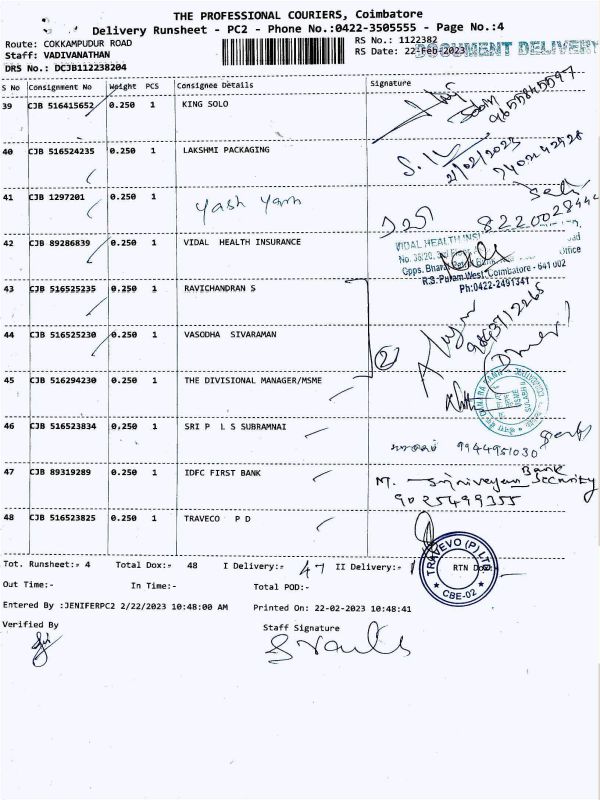 THE PROFESSIONAL COURIERS, Coimbatore
Delivery Runsheet - PC2 - Phone No.:0422-3505555 - Page No.:4
Route: COKKAMPUDUR ROAD
RS No.: 1122382
Staff: VADIVANATHAN
RS Date: 22-Feb-2023
DOCUMENT DELIVERY
DRS No.: DCJB112238204
S No Consignment No Weight PCS Consignee Details Signature
39 CJB 516415652 0.250 1 KING SOLO
9655845597
40 CJB 516524235 0.250 1 LAKSHMI PACKAGING
21/02/2023
41 CJB 1297201 0.250 1 Yash Yarn
8220028442
42 CJB 89286839 0.250 1 VIDAL HEALTH INSURANCE
VIDAL HEALTH INS
Opps. Bharat Petrol Bunk
R.S. Puram West, Coimbatore - 641 002
Ph:0422-2491341
43 CJB 516525235 0.250 1 RAVICHANDRAN S
9843712265
44 CJB 516525230 0.250 1 VASODHA SIVARAMAN
2
45 CJB 516294230 0.250 1 THE DIVISIONAL MANAGER/MSME
46 CJB 516523834 0.250 1 SRI P L S SUBRAMNAI
9944951030
47 CJB 89319289 0.250 1 IDFC FIRST BANK
M. Srinivasan Bank Security
9025499355
48 CJB 516523825 0.250 1 TRAVECO P D
TRAVEVO (P) LTD
CBE-02
Tot. Runsheet:- 4 Total Dox:- 48 I Delivery:- 47 II Delivery:- 1 RTN Dox:-
Out Time:- In Time:- Total POD:-
Entered By :JENIFERPC2 2/22/2023 10:48:00 AM Printed On: 22-02-2023 10:48:41
Verified By Staff Signature